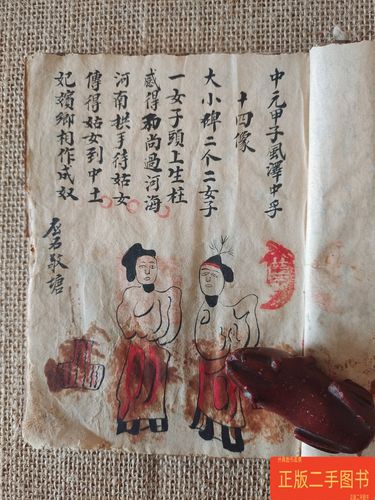 中元甲子風澤中孚
十四像
大小碑二个二女子
一女子頭上生柱
感得和尚過河海
河南拱手待姑女
傳得姑女到中土
妃嬪鄉相作成奴
石敬塘
正版二手图书